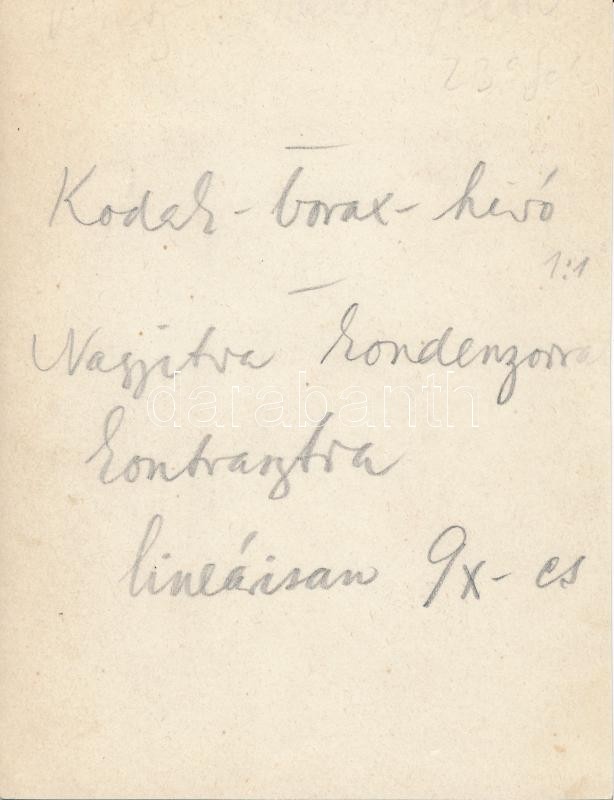 23°
Kodak-borax-hivó
1:1
Nagyitva kondenzorra
kontrasztra
lineárisan 9x-es
darabanth